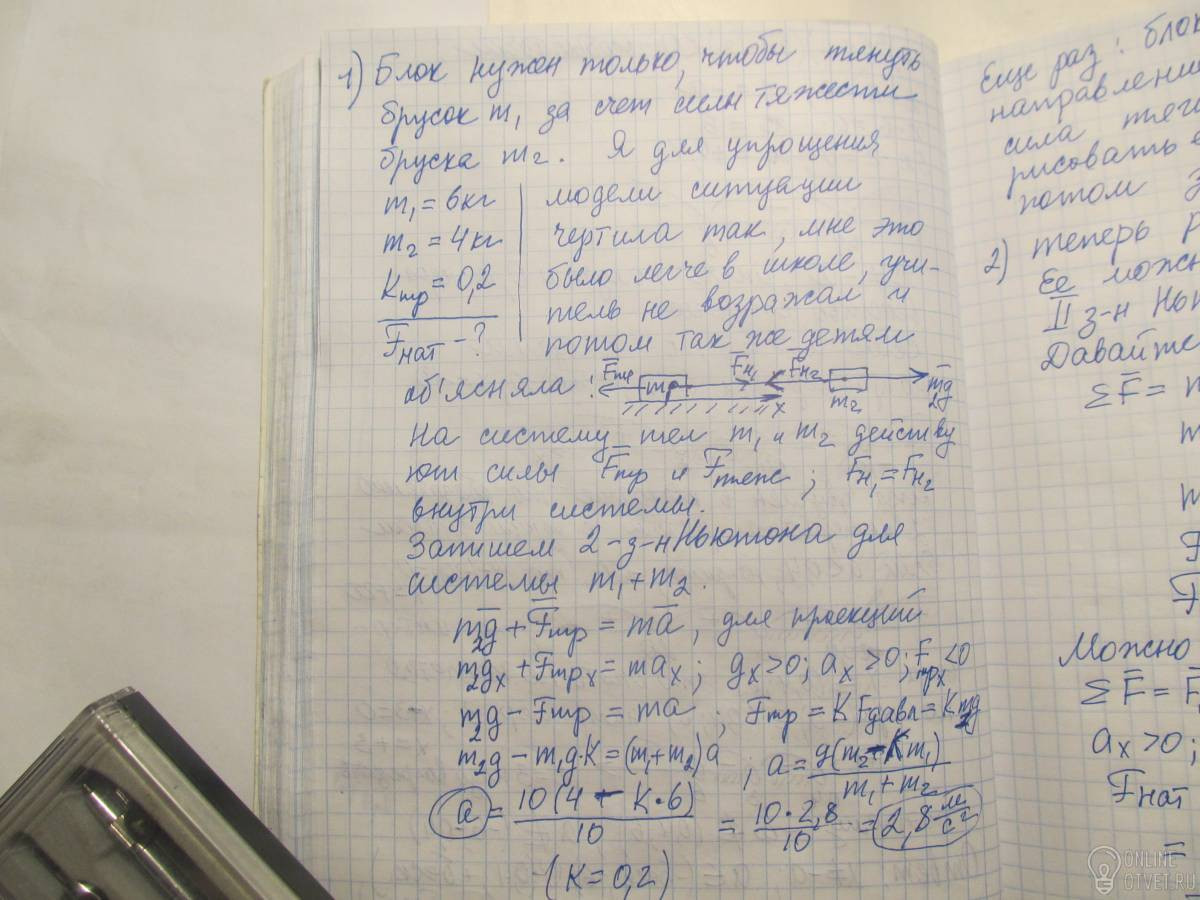 1) Блок нужен только, чтобы тянуть
брусок m₁ за счет силы тяжести
бруска m₂. Я для упрощения
m₁ = 6кг модели ситуации
m₂ = 4кг чертила так, мне это
Kтр = 0,2 было легче в школе, учи-
тель не возражал и
Fнат - ? потом так же детям
объясняла: Fтр m₁ Fн₁ Fн₂ m₂ m₂g
x
На систему тел m₁ и m₂ действу
ют силы Fтр и Fтяж; Fн₁ = Fн₂
внутри системы.
Запишем 2-з-н Ньютона для
системы m₁ + m₂.
m₂g + Fтр = ma, для проекций
m₂gx + Fтрx = max; gx > 0; ax > 0; Fтрx < 0
m₂g - Fтр = ma; Fтр = K Fдавл = K
m₂g - m₁g·K = (m₁ + m₂)a; a = g(m₂ - Km₁) / m₁ + m₂
a = 10(4 - K·6) / 10 = 10·2,8 / 10 = 2,8 м/с²
(K = 0,2)
Еще раз: блок
направлени
сила тяг
рисовать
потом з
2) теперь
Ее можн
II з-н Нь
Давайте
ΣF =
m
m
F
F
Можно
ΣF = F
ax > 0;
Fнат
=
ONLINE
OTVET.RU